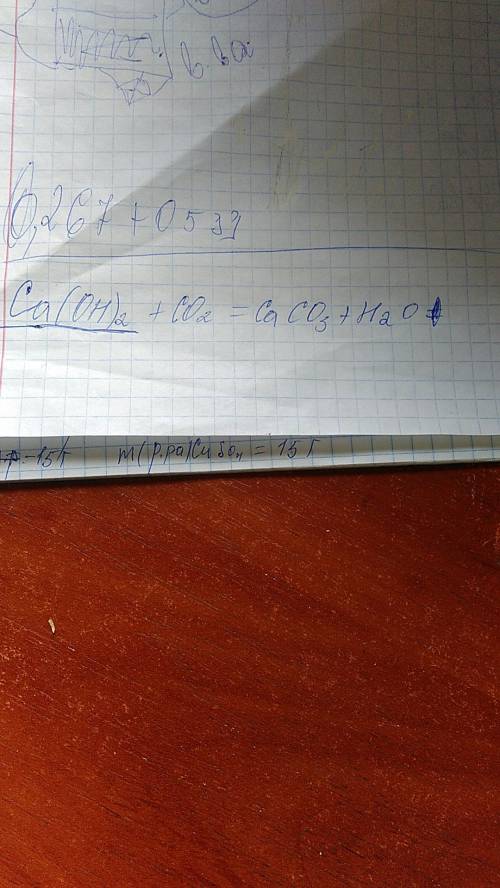 0,267 + 0533
Ca(OH)₂ + CO₂ = CaCO₃ + H₂O
-15г m(р.ра)CuSO₄ = 15г